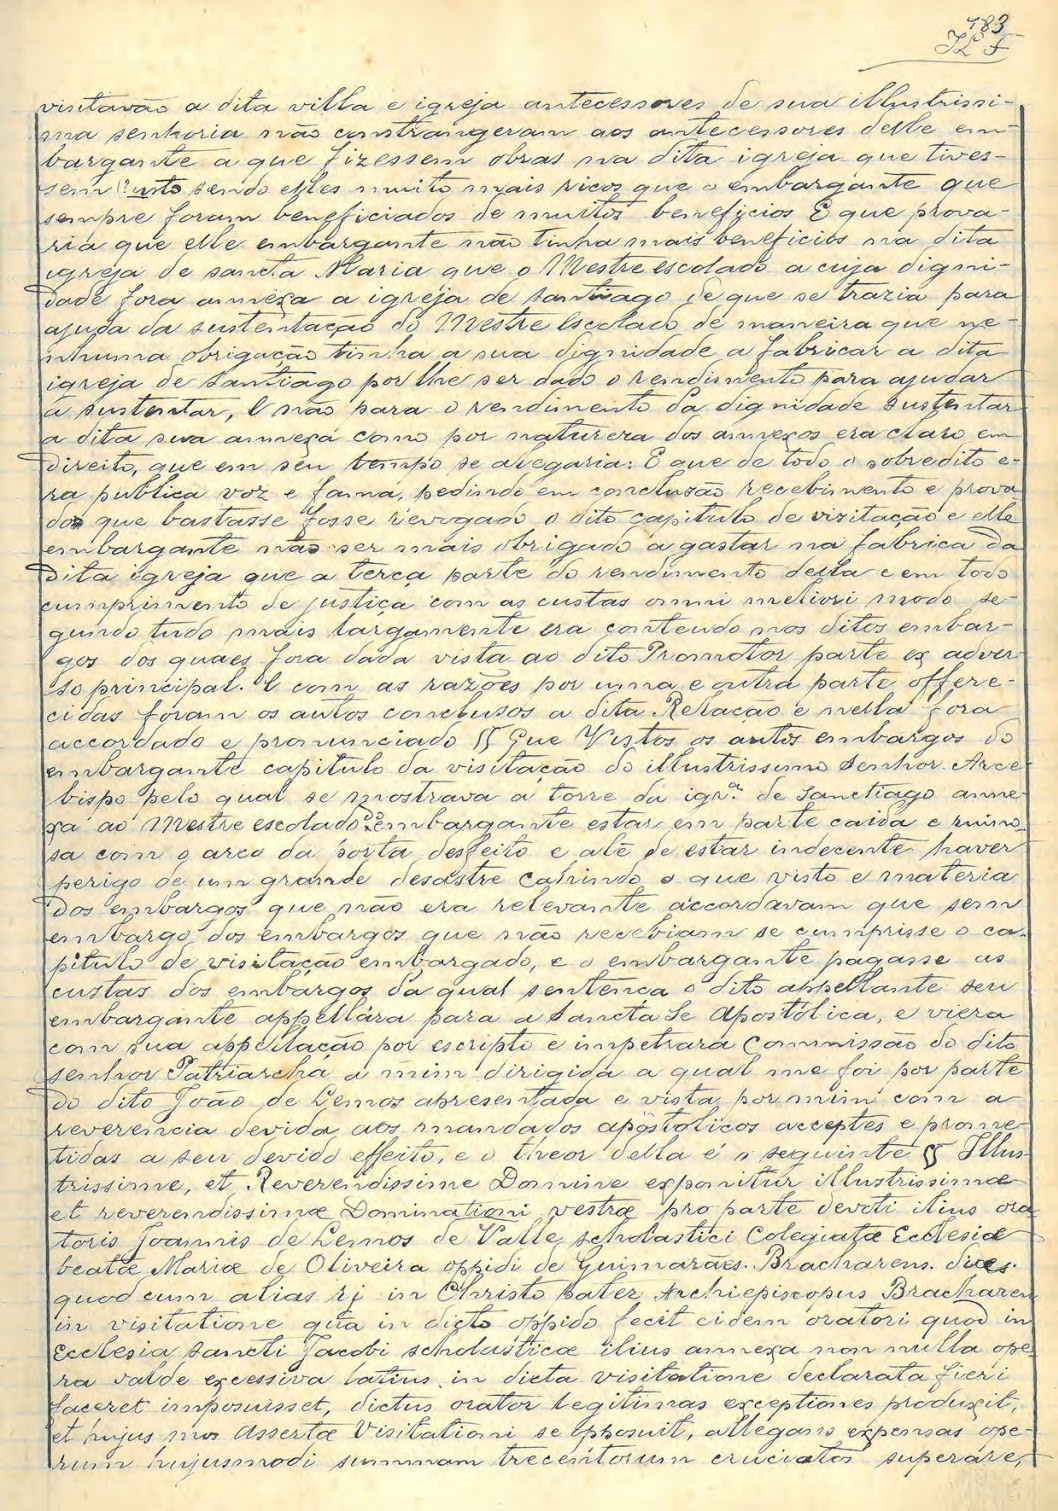 183
visitavão a dita villa e igreja antecessores de sua illustrissi-
ma senhoria não constrangeram aos antecessores delle em-
bargante a que fizessem obras na dita igreja que tives-
sem sendo elles muito mais ricos que o embargante que
sempre foram beneficiados de muitos beneficios E que prova-
ria que elle embargante não tinha mais beneficios na dita
igreja de sancta Maria que o Mestre escolado a cuja digni-
dade fora annexa a igreja de Santiago de que se trazia para
ajuda da sustentação do Mestre Escolado de maneira que ne-
nhuma obrigação tinha a sua dignidade a fabricar a dita
igreja de Santiago por lhe ser dado o rendimento para ajudar
a sustentar, E não para o rendimento da dignidade sustentar
a dita sua annexa como por natureza dos annexos era claro em
direito, que em seu tempo se alegaria: E que de todo o sobredito e-
ra publica voz e fama, pedindo em conclusão recebimento e prova
dos que bastasse fosse revogado o dito capitulo de vizitação e elle
embargante não ser mais obrigado a gastar na fabrica da
dita igreja que a terça parte do rendimento della e em todo
cumprimento de justiça com as custas omni meliori modo se-
gundo tudo mais largamente era conteudo nos ditos embar-
gos dos quaes fora dada vista ao dito Promotor parte ex adver-
so principal. E com as razões por uma e outra parte offere-
cidas foram os autos conclusos a dita Relação e nella fora
accordado e pronunciado § Que Vistos os autos embargos do
embargante capitulo da visitação do illustrissimo Senhor Arce-
bispo pelo qual se mostrava a torre da igrª. de Sanctiago anne-
xa ao Mestre escolado embargante estar em parte caida e ruino-
sa com o arco da porta desfeito e alé de estar indecente haver
perigo de um grande desastre cahindo o que visto e materia
dos embargos que não era relevante accordavam que sem
embargo dos embargos que não recebiam se cumprisse o ca-
pitulo de visitação embargado, e o embargante pagasse as
custas dos embargos da qual sentença o dito appellante seu
embargante appellára para a Sancta Se Apostólica, e viera
com sua appellação por escripto e impetrara Commissão do dito
senhor Patriarcha a mim dirigida a qual me foi por parte
do dito João de Lemos apresentada e vista por mim com a
reverencia devida aos mandados apostolicos acceptes e prome-
tidas a seu devido effeito, e o theor della é o seguinte § Illus-
trissime, et Reverendissime Domine exponitur illustrissimæ
et reverendissimæ Dominationi vestræ pro parte devoti illius ora
toris Joannis de Lemos de Valle scholastici Colegiatæ Ecclesiæ
beatæ Mariæ de Oliveira oppidi de Guimarães. Bracharens. dices.
quod cum alias rj in Christo pater Archiepiscopus Bracharen
in visitatione quà in dicto oppido fecit eidem oratori quod in
Ecclesia Sancti Jacobi scholasticæ illius annexa non nulla ope-
ra valde excessiva latius in dicta visitatione declarata fieri
faceret imposuisset, dictus orator legitimas exceptiones produxit,
et hujus mos assertæ Visitationi se opposuit, allegans expensas ope-
rum hujusmodi summam trecentorum cruciatos superare,